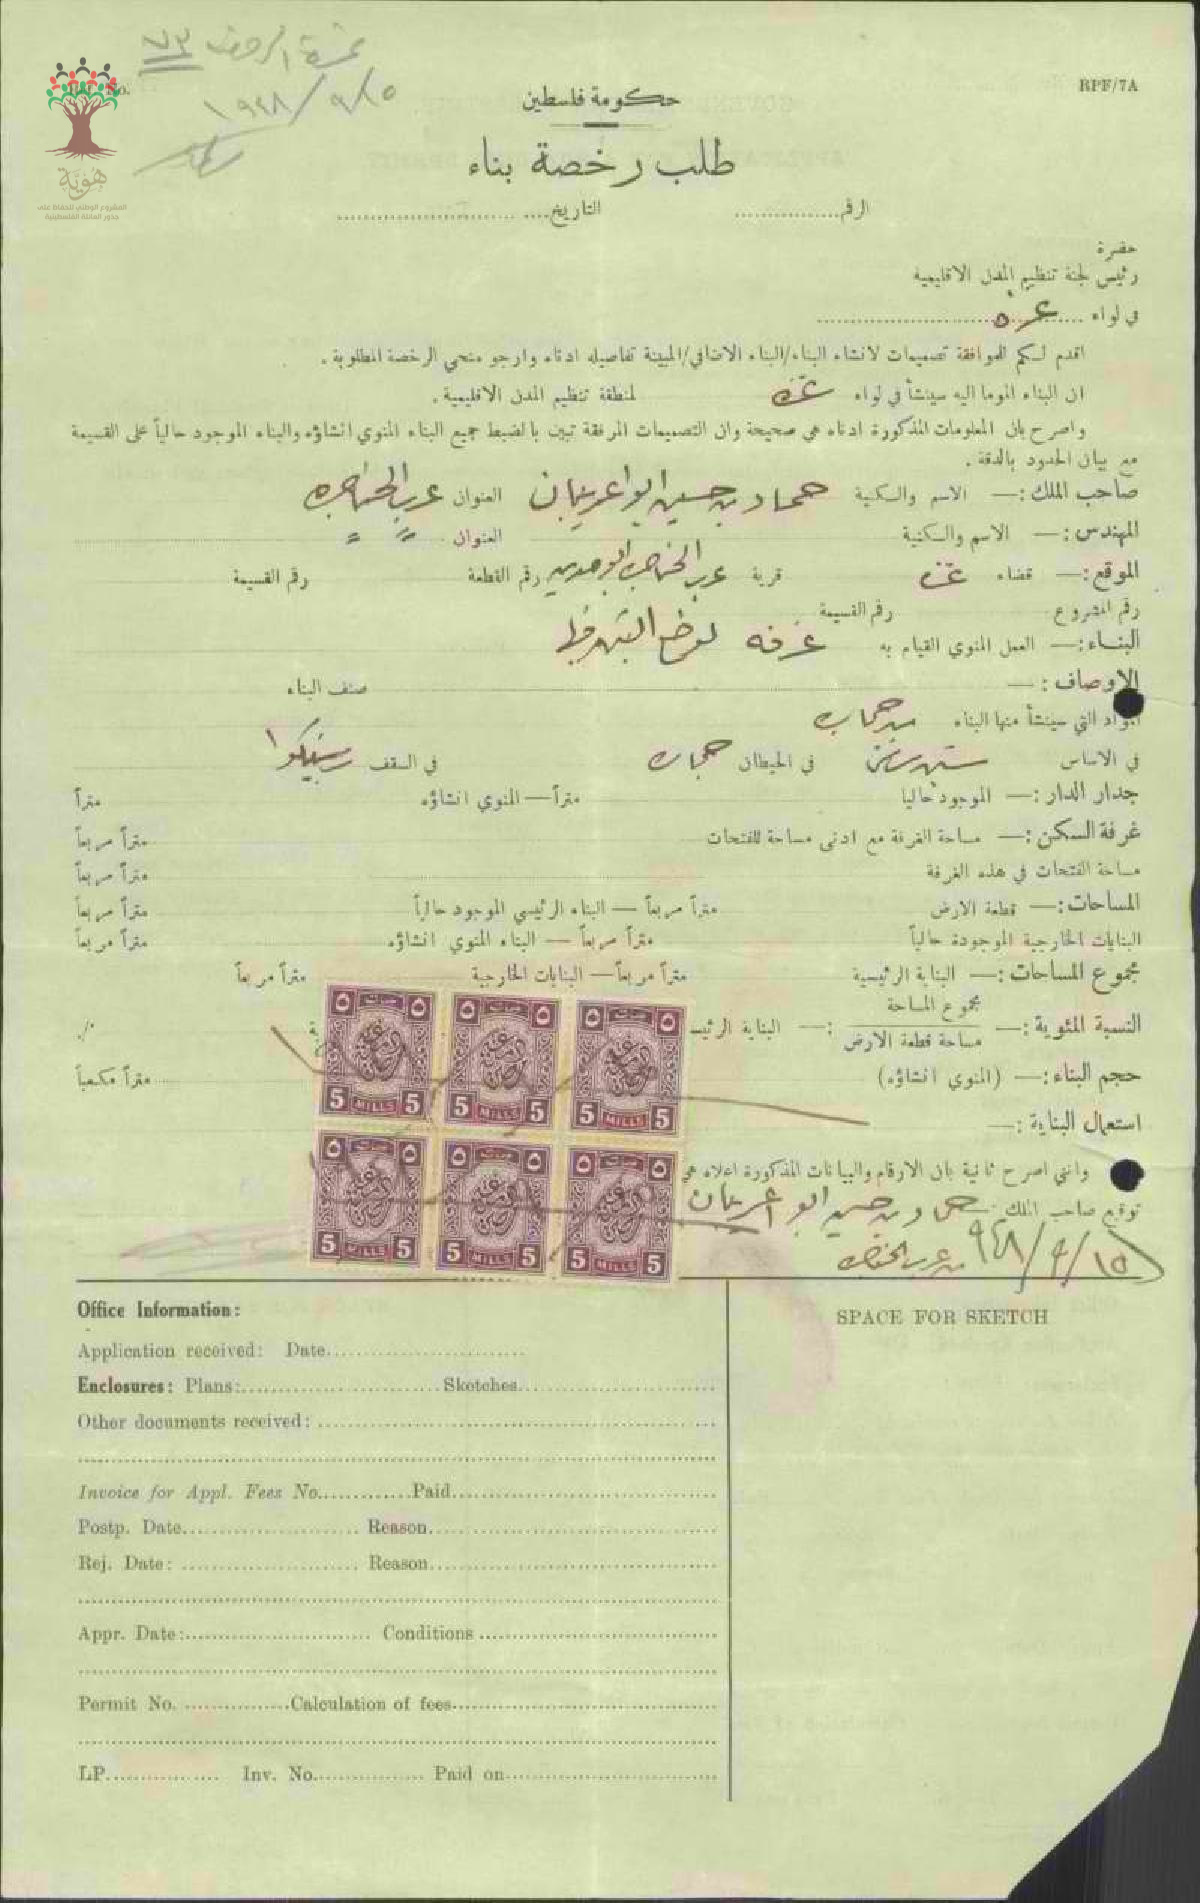 غزة الرقم ٧٣
١٩٤٨/٩/١٥
RPF/7A
No.
هوية
المشروع الوطني للحفاظ على
جذور العائلة الفلسطينية
حكومة فلسطين
طلب رخصة بناء
الرقم................ التاريخ................
حضرة
رئيس لجنة تنظيم المدن الاقليمية
في لواء غزه
اقدم لكم للموافقة تصميمات لانشاء البناء/البناء الاضافي/المبينة تفاصيله ادناه وارجو منحي الرخصة المطلوبة .
ان البناء الموما اليه سينشأ في لواء غزه لمنطقة تنظيم المدن الاقليمية .
واصرح بان المعلومات المذكورة ادناه هي صحيحة وان التصميمات المرفقة تبين بالضبط جميع البناء المنوي انشاؤه والبناء الموجود حالياً على القسيمة
مع بيان الحدود بالدقة .
صاحب الملك :— الاسم والسكنية حماد بن حسين ابو اعريبان العنوان عرب
المهندس :— الاسم والسكنية العنوان
الموقع :— قضاء غزه قرية عرب رقم القطعة رقم القسيمة
رقم المشروع رقم القسيمة
البناء :— العمل المنوي القيام به غرفه لوضع
الاوصاف :— صنف البناء
المواد التي سينشأ منها البناء من حجاره
في الاساس في الحيطان حجاره في السقف
جدار الدار :— الموجود حاليا متراً — المنوي انشاؤه متراً
غرفة السكن :— مساحة الغرفة مع ادنى مساحة للفتحات متراً مربعاً
مساحة الفتحات في هذه الغرفة متراً مربعاً
المساحات :— قطعة الارض متراً مربعاً — البناء الرئيسي الموجود حالياً متراً مربعاً
البنايات الخارجية الموجودة حالياً متراً مربعاً — البناء المنوي انشاؤه متراً مربعاً
مجموع المساحات :— البناية الرئيسية متراً مربعاً — البنايات الخارجية متراً مربعاً
النسبة المئوية :— مجموع المساحة
مساحة قطعة الارض :— البناية الرئيس ٪
حجم البناء :— (المنوي انشاؤه) متراً مكعباً
استعمال البناية :—
وانني اصرح ثانية بان الارقام والبيانات المذكورة اعلاه هي
توقيع صاحب الملك حماد بن حسين ابو اعريبان
من عرب ٩٤٨/٩/١٥
٥ ٥ ٥ ٥ ٥ ٥
5 MILLS 5 5 MILLS 5 5 MILLS 5
٥ ٥ ٥ ٥ ٥ ٥
5 MILLS 5 5 MILLS 5 5 MILLS 5
Office Information:
Application received: Date
Enclosures: Plans: Sketches
Other documents received:
Invoice for Appl. Fees No. Paid
Postp. Date Reason
Rej. Date: Reason
Appr. Date: Conditions
Permit No. Calculation of fees
LP. Inv. No. Paid on
SPACE FOR SKETCH